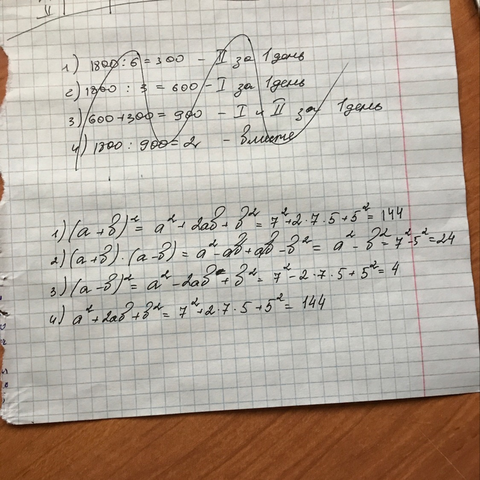 II
1) 1800 : 6 = 300 - II за 1 день
2) 1800 : 3 = 600 - I за 1 день
3) 600 + 300 = 900 - I и II за 1 день
4) 1800 : 900 = 2 - вместе
1) (a + b)² = a² + 2ab + b² = 7² + 2·7·5 + 5² = 144
2) (a + b) · (a - b) = a² - ab + ab - b² = a² - b² = 7² - 5² = 24
3) (a - b)² = a² - 2ab + b² = 7² - 2·7·5 + 5² = 4
4) a² + 2ab + b² = 7² + 2·7·5 + 5² = 144